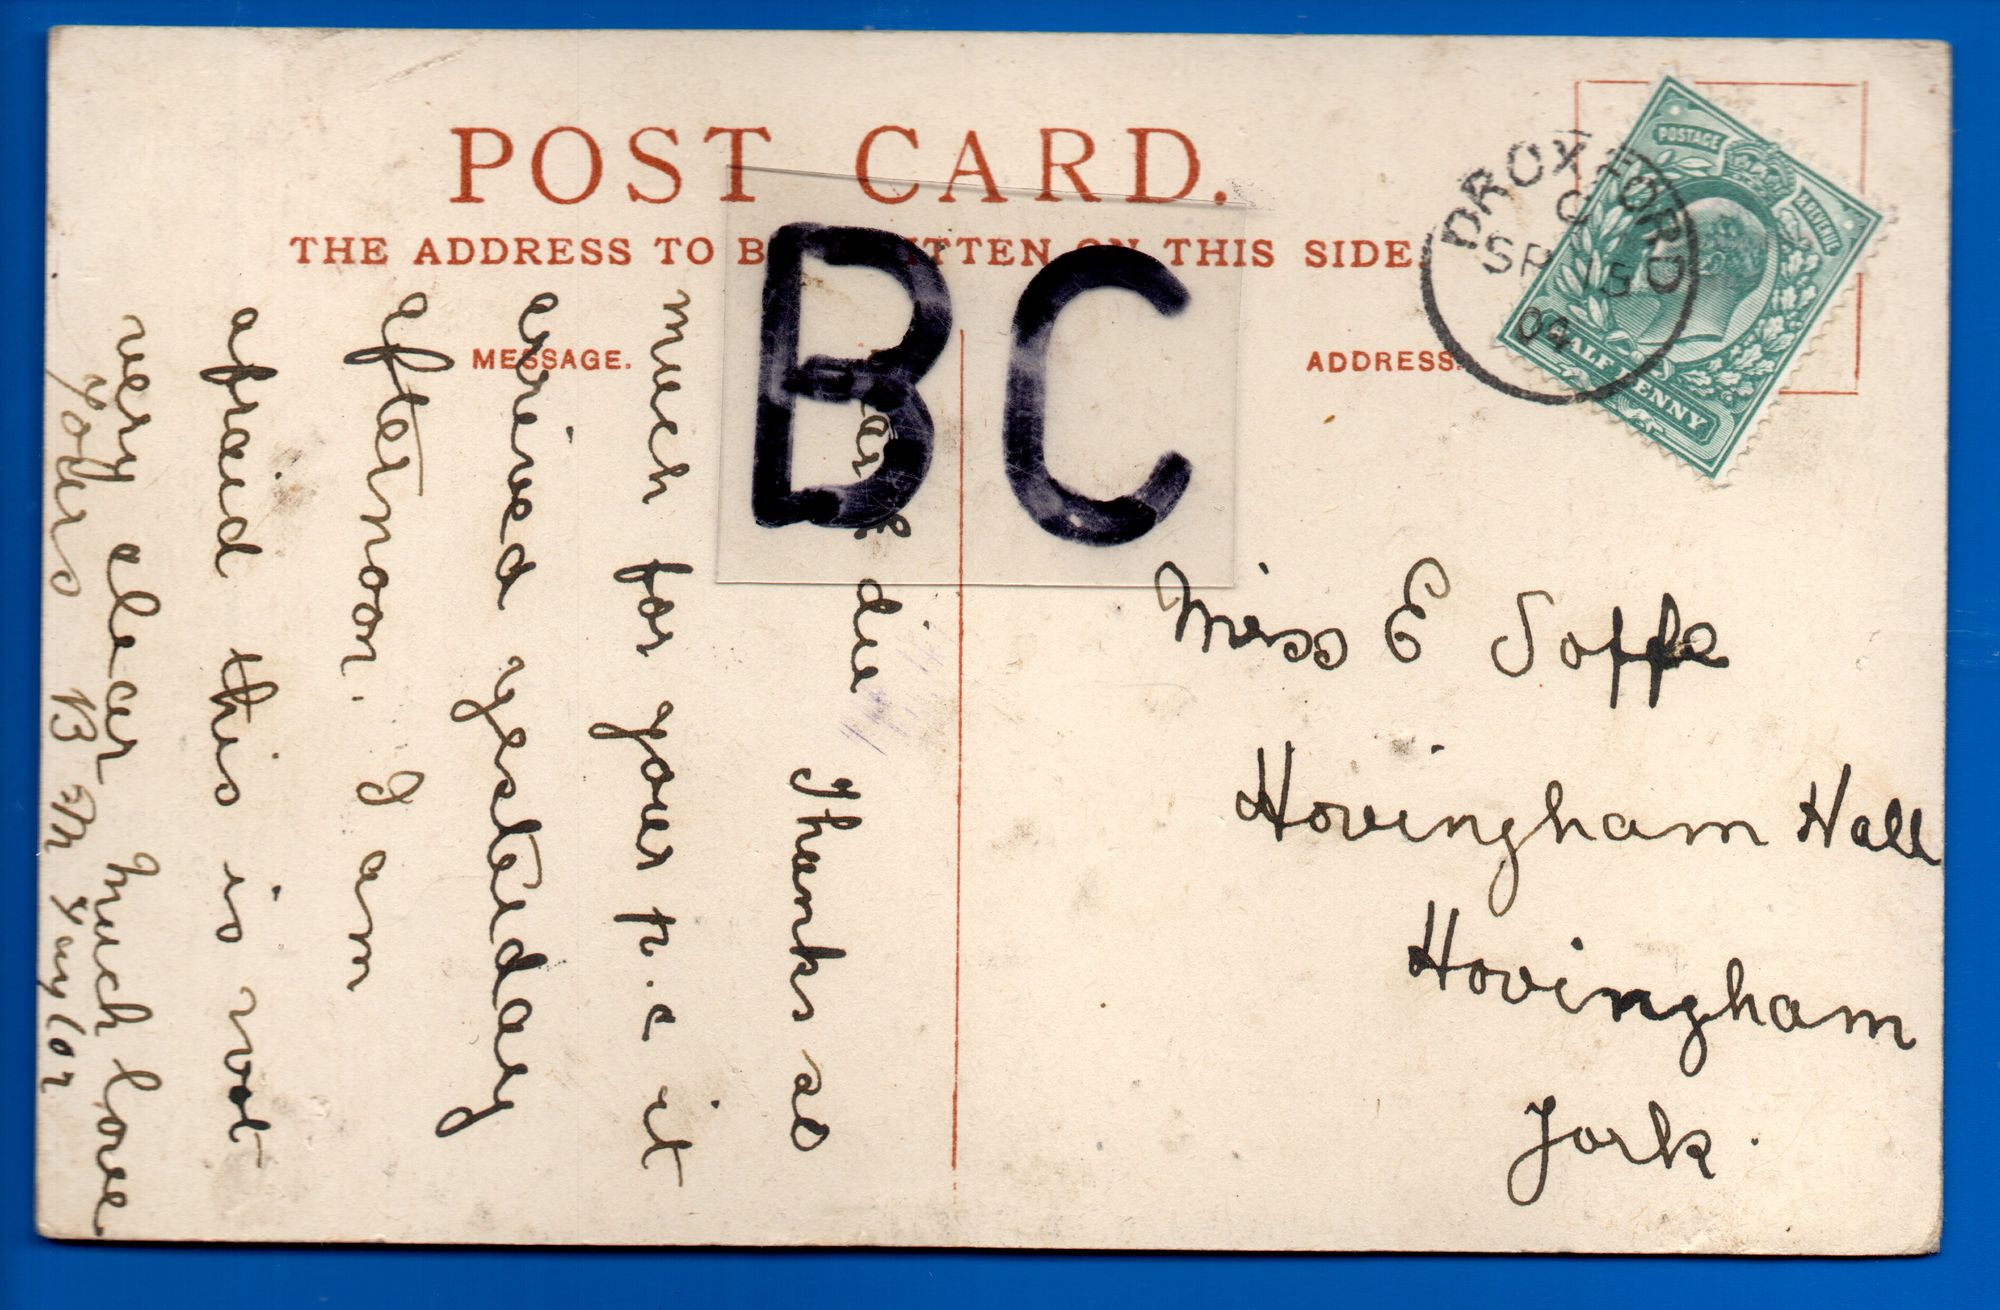 POST CARD.
THE ADDRESS TO B ITTEN ON THIS SIDE.
MESSAGE.
ADDRESS.
BC
POSTAGE & REVENUE
HALF PENNY
DROXFORD
C
SP 15
04
Miss E Soffe
Hovingham Hall
Hovingham
York.
die
Thanks so
much for your p.c it
arrived yesterday
afternoon. I am
afraid this is not
very clear Much love
Yours B M Taylor